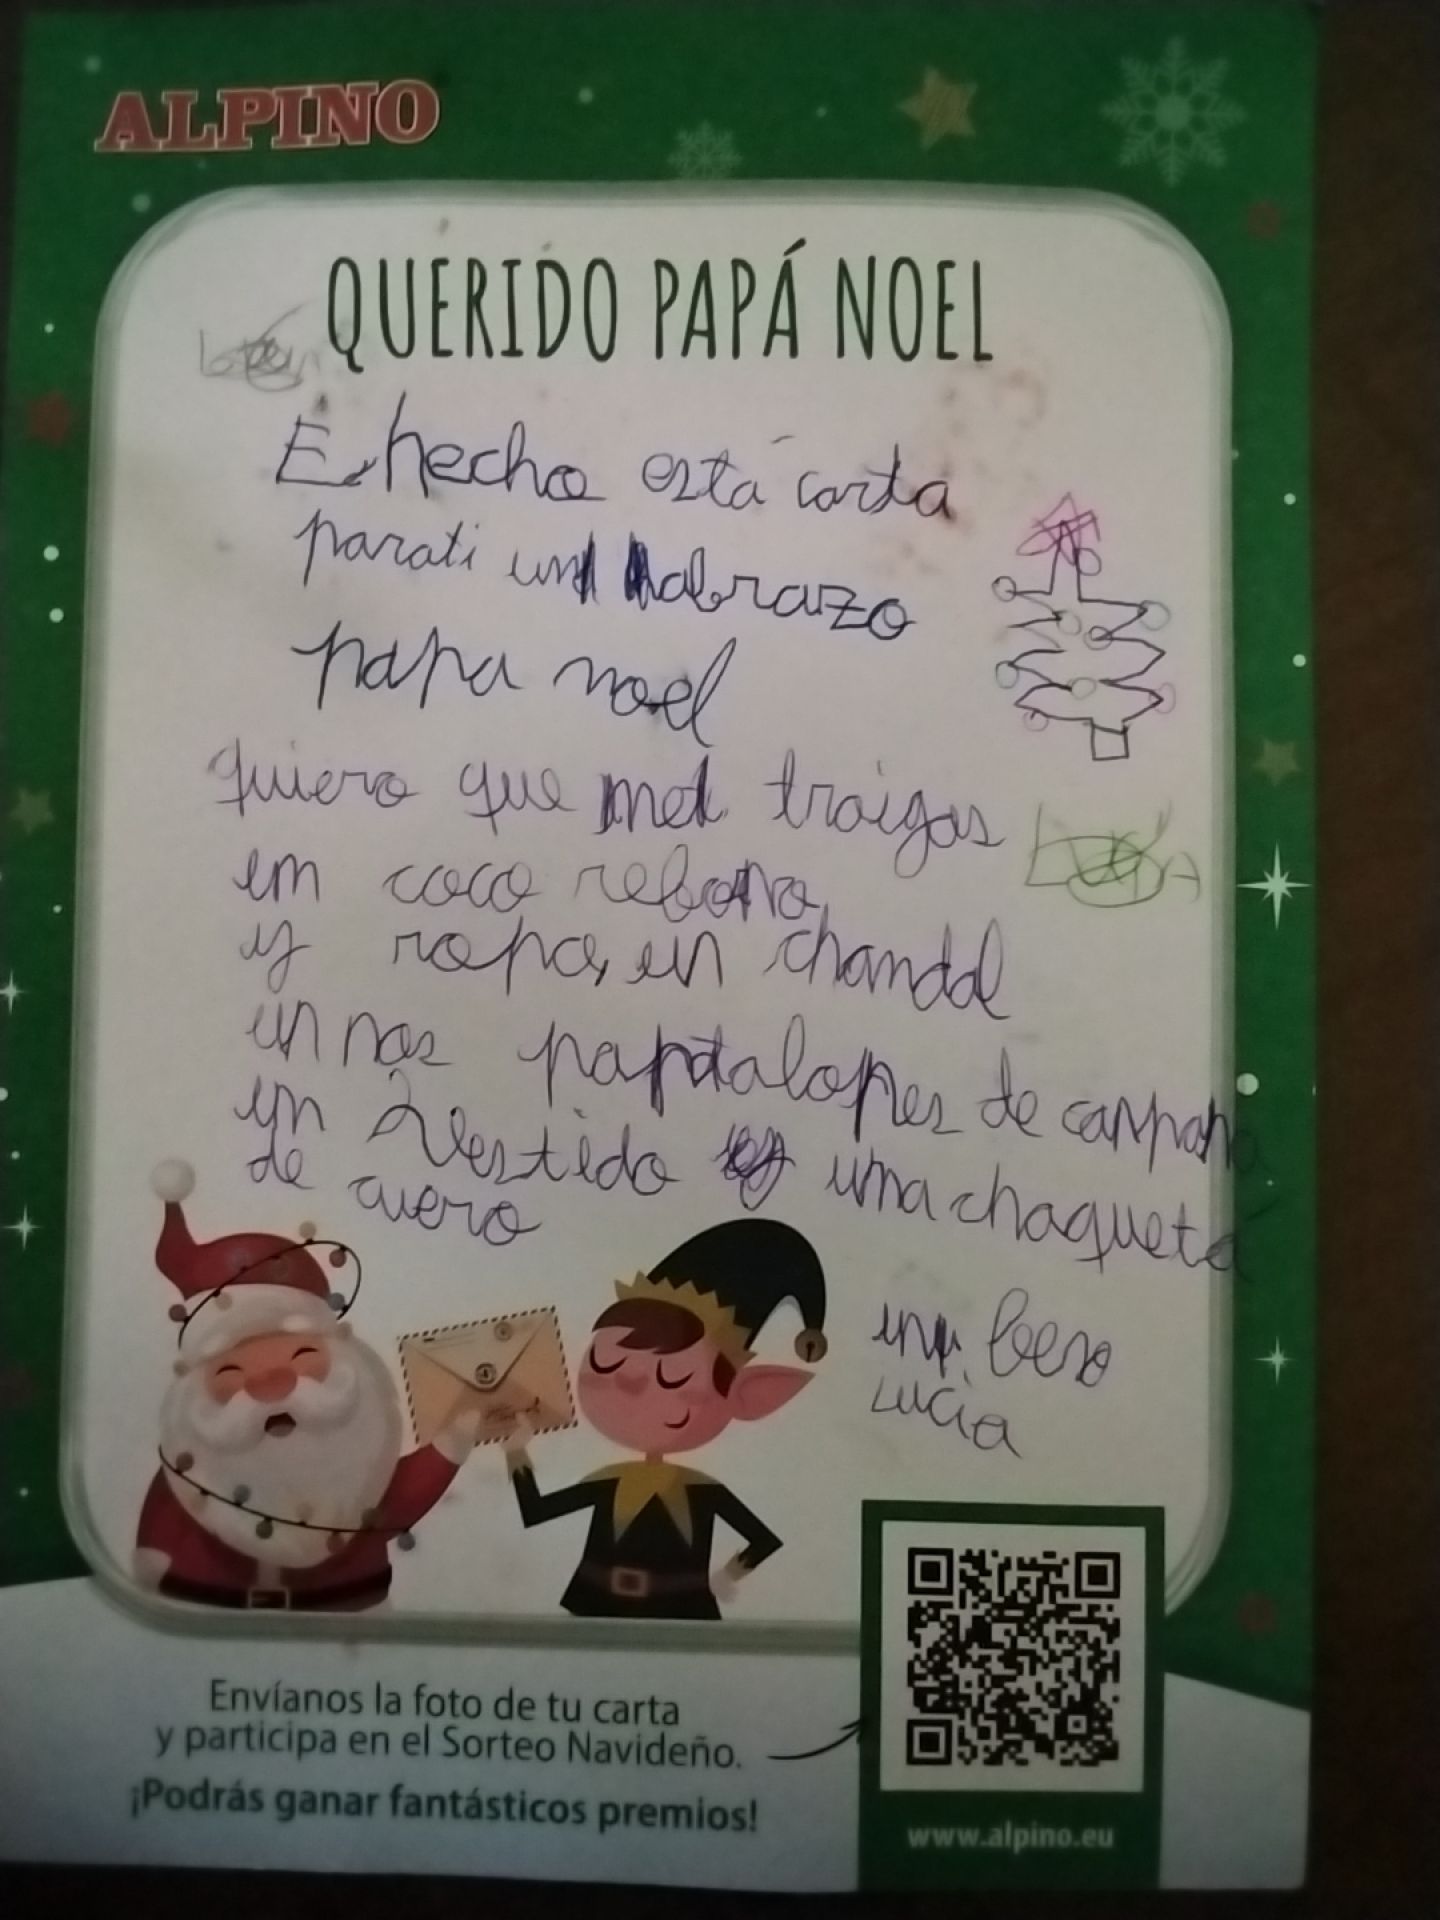 ALPINO
QUERIDO PAPÁ NOEL
E hecho esta carta
parati un abrazo
papa noel
quiero que me traigas
un coco rebono
y ropa, un chandal
un nos pantalones de campana
un vestido y una chaqueta
de cuero
un beso
Lucia
Envíanos la foto de tu carta
y participa en el Sorteo Navideño.
¡Podrás ganar fantásticos premios!
www.alpino.eu